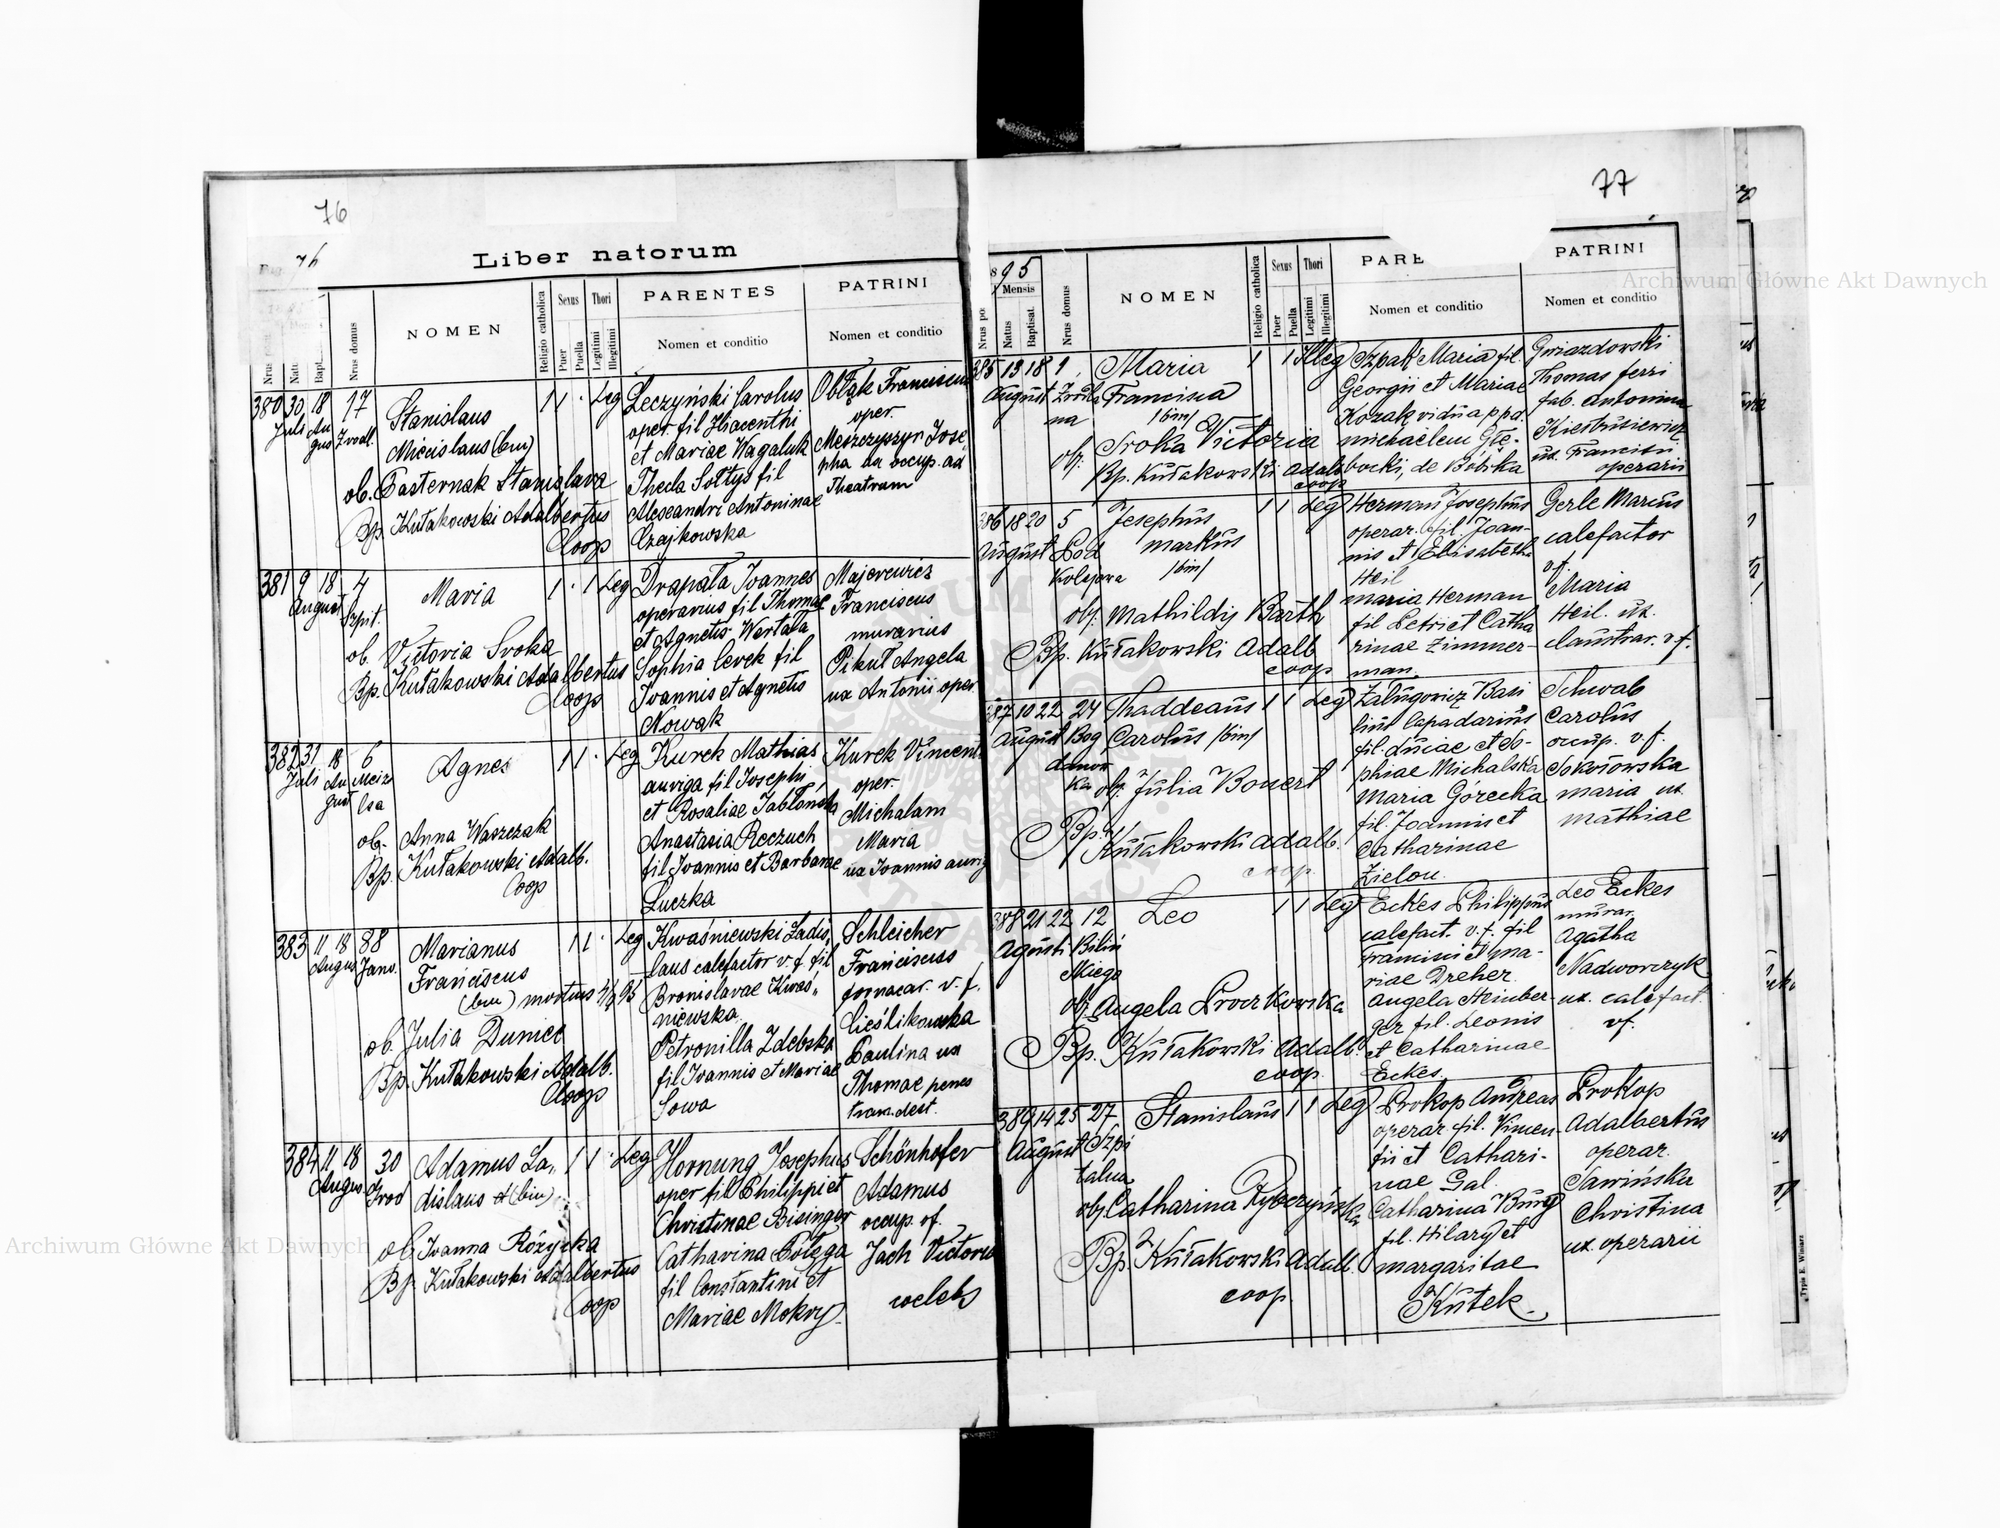 76
Liber natorum
76
Nrus domus
NOMEN
Religio catholica
Sexus
Puer
Puella
Thori
Legitimi
Illegitimi
PARENTES
Nomen et conditio
PATRINI
Nomen et conditio
380 30 18 17
Juli Au
gust
Stanislaus
Miecislaus (bin)
ob. Pasternak Stanislava
Bp. Kułakowski Adalbertus
Coop
1 1 · Leg
Leczyński Carolus
oper. fil Hiacenthi
et Mariae Wagaluk
Thecla Sołtys fil
Alexandri Antoninae
Czajkowska
Obłąk Franciscus
oper.
Meszczyszyn Jose
pha ux occup. ad
Theatrum
381 9 18 4
August Szpit.
Maria
ob. Victoria Sroka
Bp. Kułakowski Adalbertus
Coop
1 · 1 Leg
Drapała Joannes
operarius fil Thomae
et Agnetis Wartała
Sophia Cevek fil
Joannis et Agnetis
Nowak
Majerewicz
Franciscus
murarius
Pikuł Angela
ux Antonii oper.
382 31 18 6
Juli Au
gust
Agnes
ob. Anna Waszczak
Bp. Kułakowski Adalb.
Coop
1 1 · Leg
Kurek Mathias
auriga fil Josephi
et Rosaliae Jabłońska
Anastasia Reczuch
fil Joannis et Barbarae
Luczka
Kurek Vincent
oper.
Michalam
Maria
ux Joannis aurig
383 11 18 88
August Jano.
Marianus
Franciscus
(bin) mortuus
ob. Julia Duniec
Bp. Kułakowski Adalb.
Coop
1 1 · Leg
Kwaśniewski Ladis,
laus calefactor v. f. fil
Bronislavae Kwaś,
niewska
Petronilla Zdebska
fil Joannis et Mariae
Sowa
Schleicher
Franciscus
fornacar. v. f.
Cieślikowska
Paulina ux
Thomae penes
tram. dest.
384 11 18 30
Augus Grod
Adamus La,
dislaus (bin)
ob. Joanna Różycka
Bp. Kułakowski Adalbertus
Coop
1 1 · Leg
Hornung Josephus
oper fil Philippi et
Christinae Bisinger
Catharina Potęga
fil Constantini et
Mariae Mokry
Schönhofer
Adamus
occup. vf.
Jach Victoria
coelebs
77
95
Mensis
Natus
Baptisat.
Nrus domus
NOMEN
Religio catholica
Sexus
Puer
Puella
Thori
Legitimi
Illegitimi
PARE
Nomen et conditio
PATRINI
Nomen et conditio
385 13 18 9
August Źródła
na
Maria
Francisca
/bin/
ob. Sroka Victoria
Bp. Kułakowski Adalb
coop
1 1 Illeg
Szpak Maria fil.
Georgii et Mariae
Kozak vidua p. pd.
Michaelem Głę-
bocki, de Bóbrka
Gwiazdowski
Thomas ferri
fab. Antonina
Kiestrusiewicz
ux. Francisci
operarii
386 18 20 5
August Pod
Kolejowa
Josephus
Markus
/bin/
ob. Mathildis Barth
Bp. Kułakowski Adalb
coop
1 1 Leg
Herman Josephus
operar. fil Joan-
nis et Elisabeth
Heil
Maria Herman
fil Petri et Catha
rinae Zimmer-
man
Gerle Marcus
calefactor
vf.
Maria
Heil. ux.
claustrar. v. f.
387 10 22 24
August Bog
danow
ka
Thaddeaus
Carolus /bin/
ob. Julia Bonert
Bp. Kułakowski Adalb.
coop.
1 1 Leg
Załugowicz Basi
lius Capadarius
fil. Luciae et So-
phiae Michalska
Maria Górecka
fil. Joannis et
Catharinae
Zielon.
Schwab
Carolus
occup. v. f.
Sokołowska
Maria ux.
Mathiae
388 21 22 12
Agusti Biliń
skiego
Leo
ob. Angela Proczkowska
Bp. Kułakowski Adalb.
coop.
1 1 Leg
Eckes Philippus
calefact. v. f. fil
Francisci et Ma-
riae Dreher
Angela Heinber-
ger fil. Leonis
et Catharinae
Eckes
Leo Eckes
murar.
Agatha
Nadworczyk
ux. calefact.
vf.
389 14 25 27
August Szpi
talna
Stanislaus
ob. Catharina Rybczyńska
Bp. Kułakowski Adalb.
coop.
1 1 Leg
Prokop Andreas
operar. fil. Vincen-
tii et Cathari-
nae Gal.
Catharina Burg
fil. Hilary et
Margaritae
Kutek
Prokop
Adalbertus
operar.
Sawińska
Christina
ux. operarii
Typis E. Winiarz
Archiwum Główne Akt Dawnych
Archiwum Główne Akt Dawnych